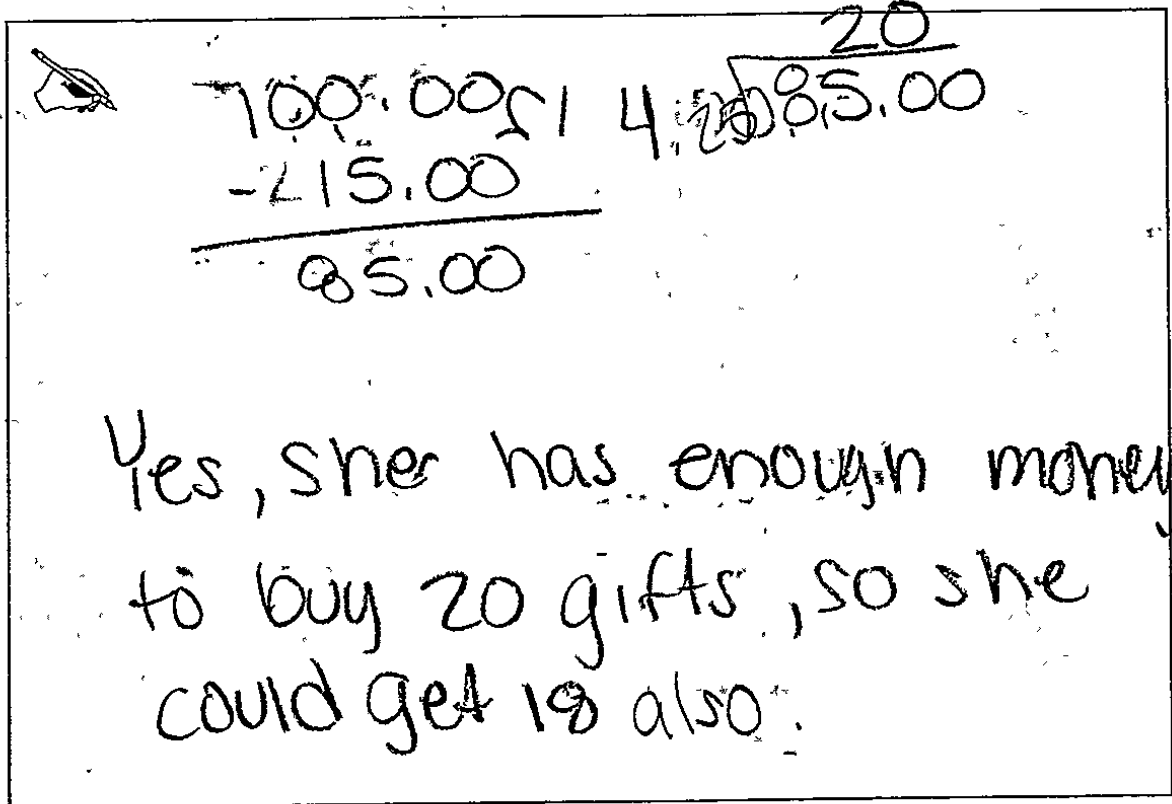 20
4.25 85.00
-215.00
85.00
Yes, she has enough money
to buy 20 gifts, so she
could get 18 also.